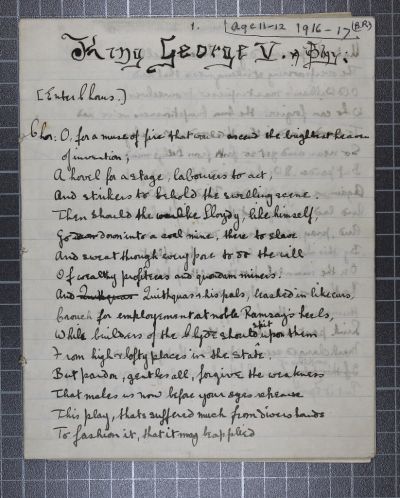 1. Age 11-12 1916-17 (B.R)
King George V. A Play:
[Enter Chorus.]
Chor. O, for a muse of fire that would ascend the brightest heaven
of invention;
A hovel for a stage, labourers to act,
And strikers to behold the swelling scene.
Then should the warlike Lloydy, like himself,
Go down into a coal mine, there to slave
And sweat through every pore to do the will
Of wealthy profiteers and quondam miners.
And his pals, leashed in like curs,
Crouch for employement at noble Ramsay's heels,
While builders of the Clyde should spit upon them
From high & lofty places in the state.
But pardon, gentles all, forgive the weakness
That makes us now before your eyes rehearse
This play, thats suffered much from divers hands
To fashion it, that it may be applied